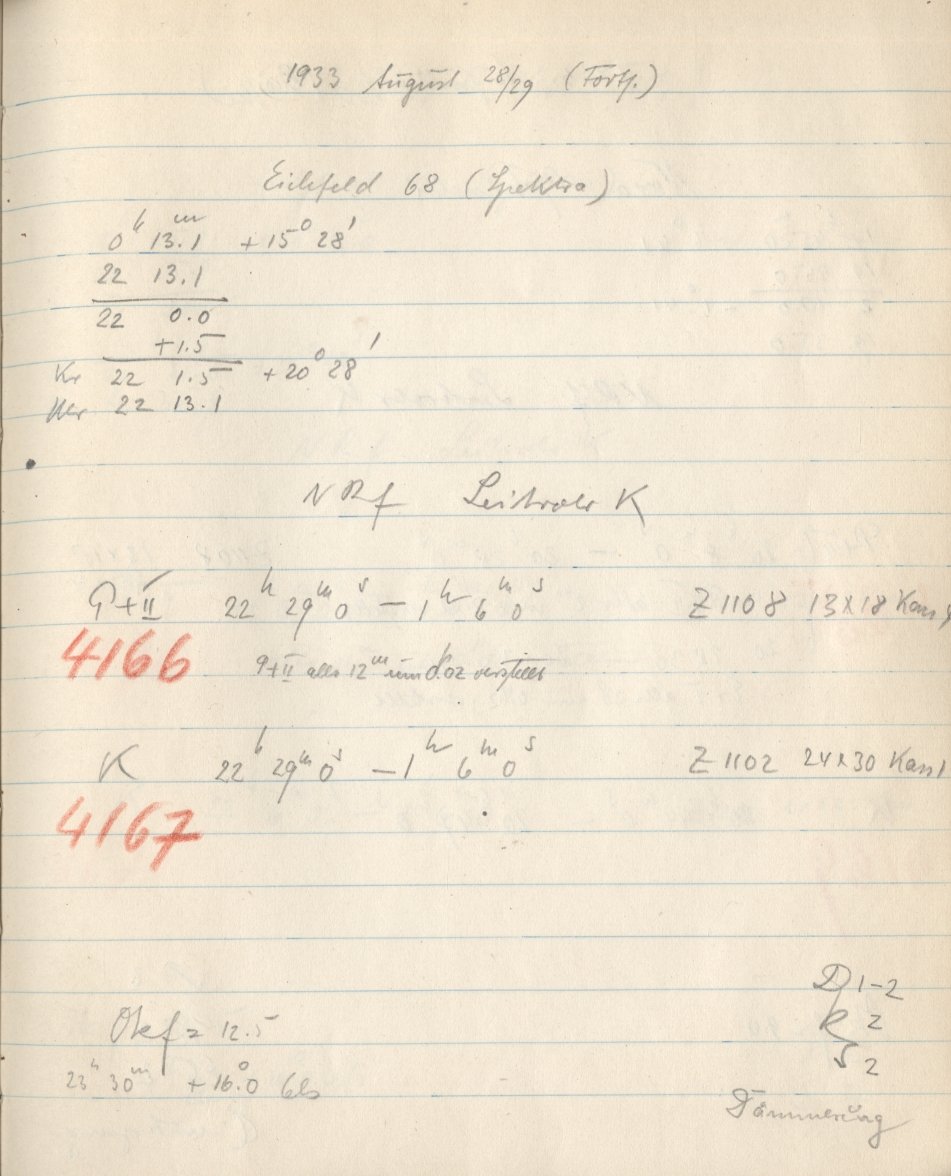 1933 August 28/29 (Forts.)
Eichfeld 68 (Spektra)
0ʰ 13.1ᵐ +15° 28'
22 13.1
22 0.0
+1.5
Kr 22 1.5 +20° 28'
Ukr 22 13.1
N Rf Leitrohr K
22ʰ 29ᵐ 0ˢ — 1ʰ 6ᵐ 0ˢ Z 1108 13x18
4166
alle 12ᵐ um 0.02 verstellt
K 22ʰ 29ᵐ 0ˢ — 1ʰ 6ᵐ 0ˢ Z 1102 24x30
4167
D 1-2
Okf = 12.5
R 2
S 2
23ʰ 30ᵐ +16.0°
Dämmerung